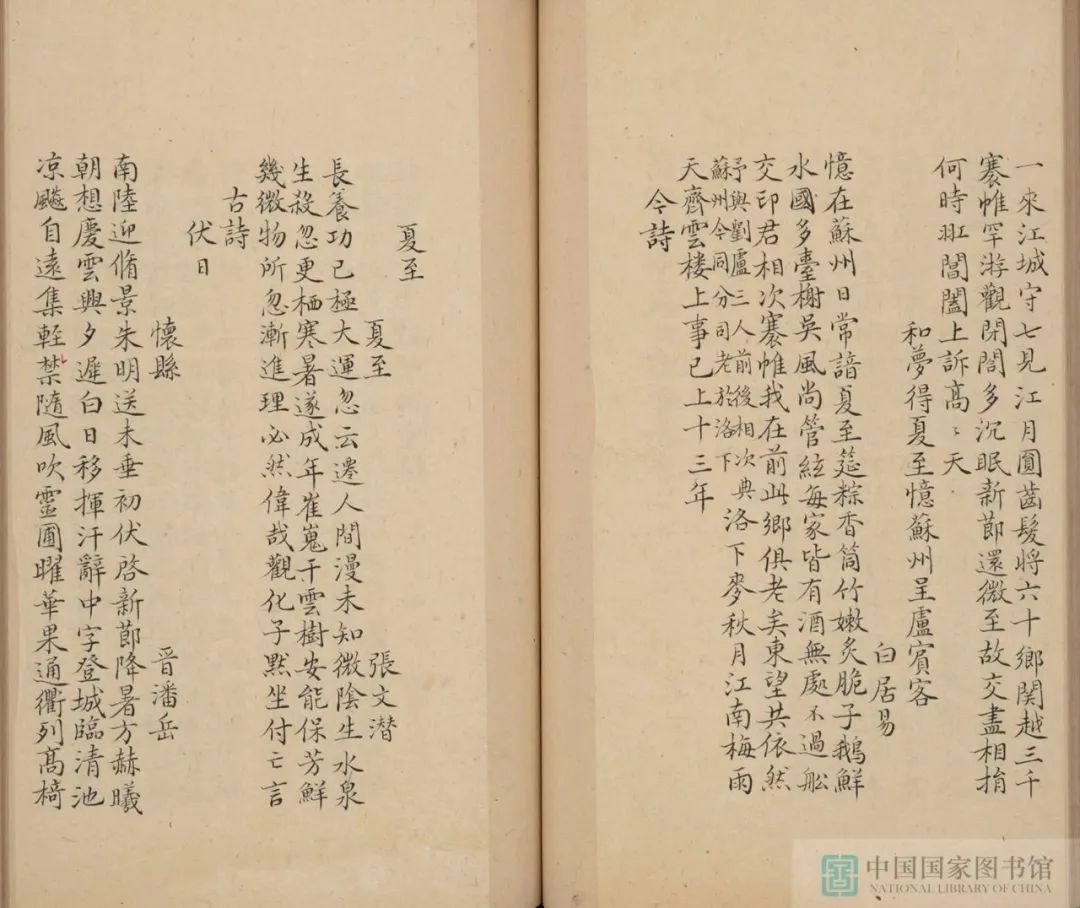 一來江城守七見江月圓齒髮將六十鄉関越三千
褰帷罕游觀閉閤多沉眠新節還復至故交盡相捐
何時㸚閶闔上訴髙〻天
和夢得夏至憶蘇州呈盧賓客
白居易
憶在蘇州日常諳夏至筵粽香筒竹嫩炙脆子鵝鮮
水國多臺榭吳風尚管絃每家皆有酒無處不過船
交印君相次褰帷我在前此鄉俱老矣東望共依然
予與劉盧三人前後相次典
蘇州今同分司老於洛下
洛下麥秋月江南梅雨
天齊雲楼上事已上十三年
今詩
夏至
夏至 張文潛
長養功已極大運忽云遷人間漫未知微陰生水泉
生殺忽更栖寒暑遂成年崔嵬干雲樹安能保芳鮮
幾微物所忽漸進理必然偉哉觀化子默坐付亡言
古詩
伏日
懷縣 晋潘岳
南陸迎脩景朱明送末垂初伏啓新節降暑方赫曦
朝想慶雲興夕遲白日移揮汗辭中宇登城臨清池
凉飈自遠集輕襟隨風吹靈圃曜華果通衢列髙椅
中国国家图书馆
NATIONAL LIBRARY OF CHINA